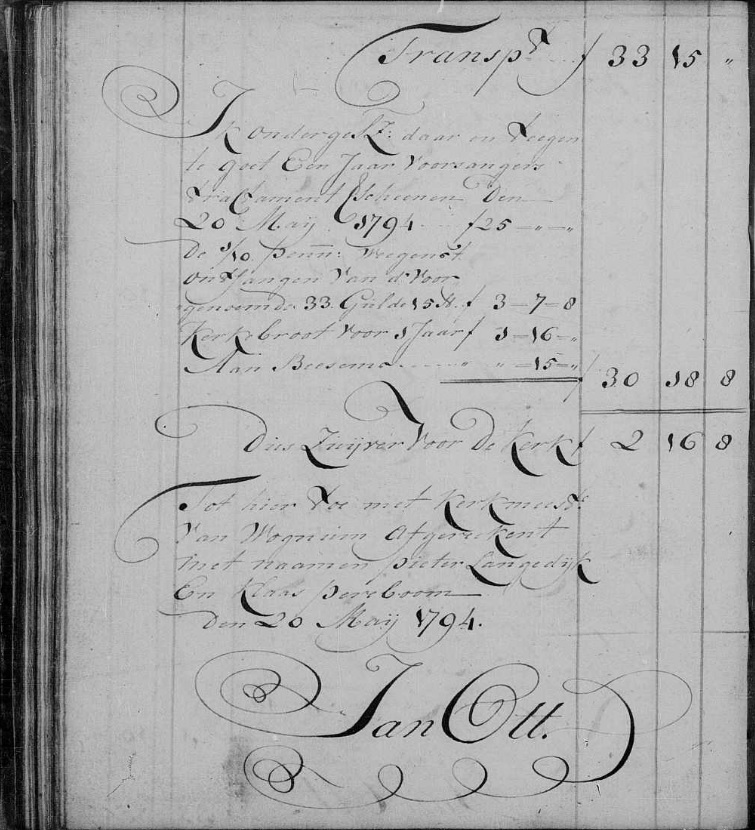 Transpt. f 33 15 "
Ik ondergesz: daar en teegen
te goet Een Jaar Voorsangers
tractament Escheenen Den
20 Maij 1794. f 25 - " - "
De 1/10 penn: Weegens t
ontfangen Van d' Voor
genoemde 33 Gulde 15 st. f 3 - 7 - 8
Kerkebroot Voor 1 Jaar f 1 - 16 - "
Aan Beesems " " - 15 - " f 30 18 8
Dies Zuijver Voor De Kerk f 2 16 8
Tot hier toe met Kerkmeestr.
Van Wognum Afgereekent
met naamen pieter Langedijk
En Klaas pereboom
den 20 Maij 1794.
Jan Ott.